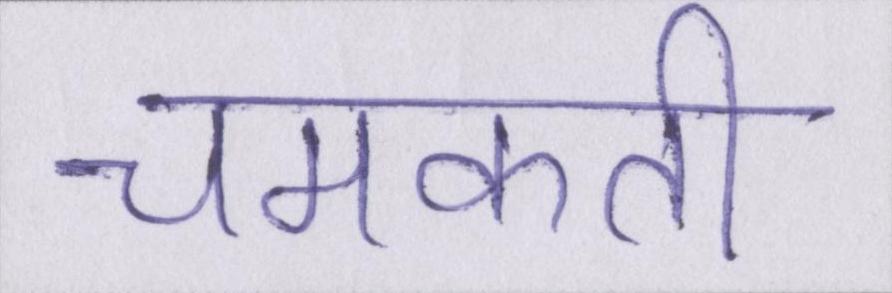 चमकती